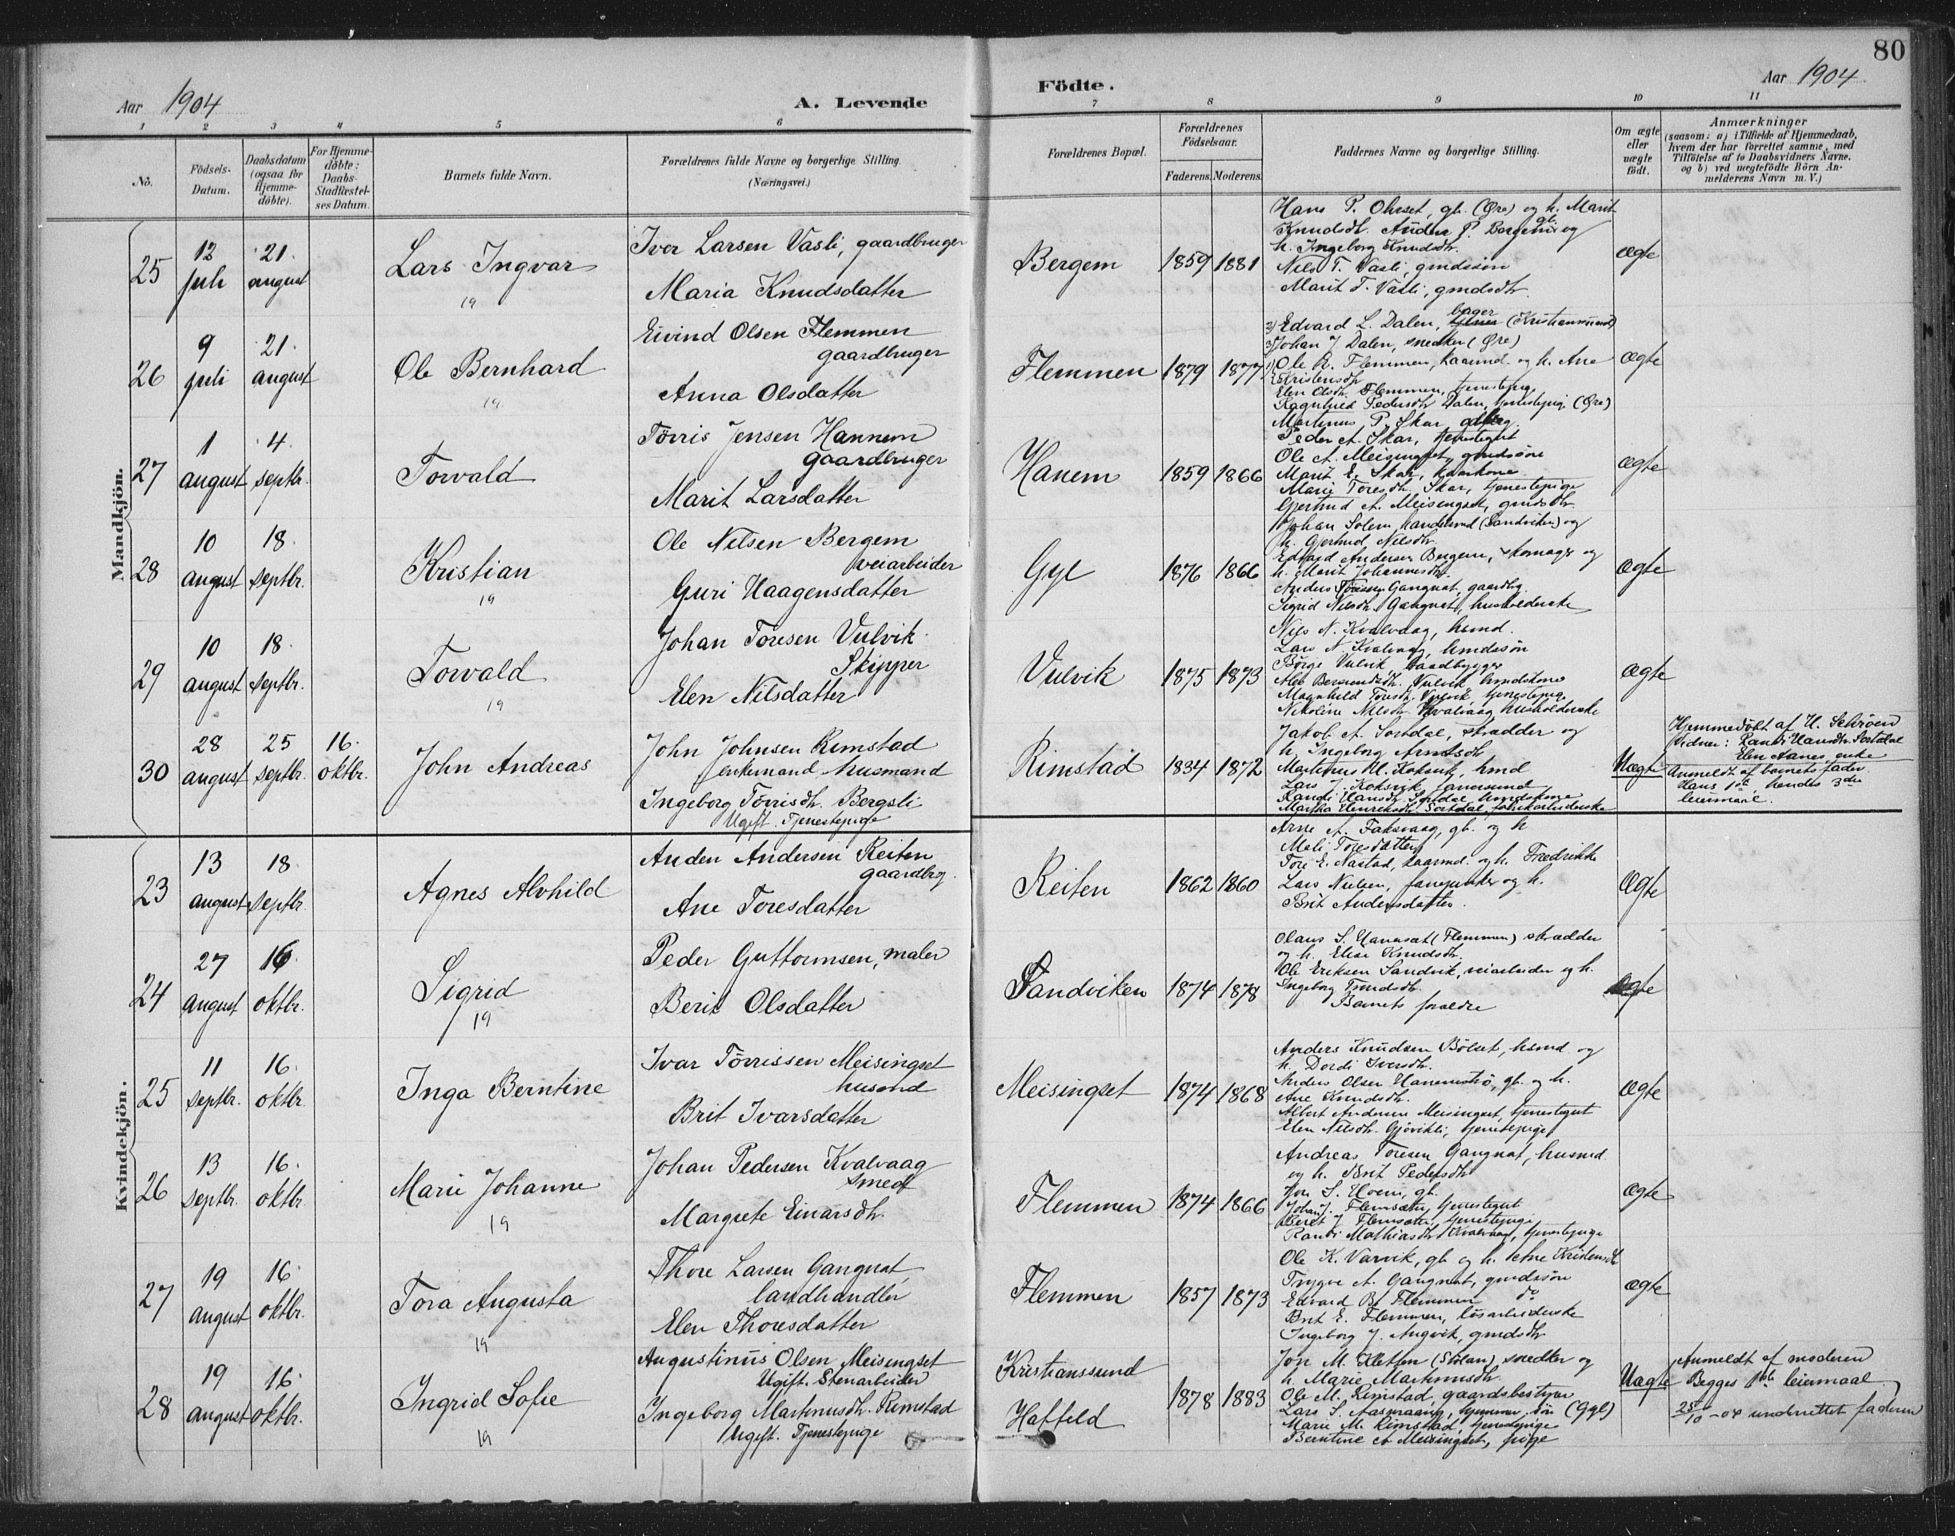 80
Aar 1904
A. Levende
Födte.
Aar 1904
1 2 3 4 5 6 7 8 9 10 11
No.
Födsels-Datum.
Daabsdatum (ogsaa for Hjemme-döbte).
For Hjemme-döbte: Daabs-Stadfæstelses Datum.
Barnets fulde Navn.
Forældrenes fulde Navne og borgerlige Stilling.
(Næringsvei.)
Forældrenes Bopæl.
Forældrenes Födselsaar.
Faderens. Moderens.
Faddernes Navne og borgerlige Stilling.
Om ægte eller uægte födt.
Anmærkninger
(saasom: a) i Tilfælde af Hjemmedaab,
hvem der har forrettet samme, med
Tilföielse af to Daabsvidners Navne,
og b) ved uægtefödte Börn An-
melderens Navn m. V.)
Mandkjön.
25 12 juli 21 august Lars Ingvar
19
Iver Larsen Vasli, gaardbruger
Maria Knudsdatter
Bergem 1859 1881
Hans P. Ohrset, gb. (Øre) og h. Marit
Knudsdt. Anders P. Bergem gb. og
h. Ingeborg Knudsdtr.
Nils T. Vasli, gmdssøn
Marit T. Vasli, gmdsdtr.
ægte
26 9 juli 21 august Ole Bernhard
19
Eivind Olsen Flemmen
gaardbruger
Anna Olsdatter
Flemmen 1879 1877
Edvard L. Dalen, bager (Kristianssund)
Johan J. Dalen, snedker (Øre)
Ole R. Flemmen, kaarmd. og h. Ane
Kristensdtr.
Elen Olsdtr. Flemmen, tjenestepige
Ragnhild Pedersdtr. Dalen, tjenestepig. (Øre)
ægte
27 1 august 4 septbr. Torvald
Tørris Jensen Hannem
gaardbruger
Marit Larsdatter
Hanem 1859 1866
Martinus P. Skar
Peder A. Skar, tjenestegut
Ole A. Meisingset, gmdssøn
Marit E. Skar, kaarkone
Marie Toresdtr. Skar, tjenestepige
Gjertrud A. Meisingset, gmdsdtr.
ægte
28 10 august 18 septbr. Kristian
19
Ole Nilsen Bergem
veiarbeider
Guri Haagensdatter
Gyl 1876 1866
Johan Solem, handelsmd (Sandviken) og
h. Gjertrud Nilsdtr.
Edvard Andersen Bergem, skomager og
h. Marit Johannesdtr.
Anders Toresen Gangnat, gaardbrg.
Sigrid Nilsdtr. Gangnat, husholderske
ægte
29 10 august 18 septbr. Torvald
19
Johan Toresen Vulvik
Skipper
Elen Nilsdatter
Vulvik 1875 1873
Nils N. Kvalvaag, husmd.
Lars N. Kvalvaag, hmdssøn
Børge Vulvik, baadbygger
Vulvik hmdskone
Magnhild Toresdtr. Vulvik, tjenestepige
Nikoline Nilsdtr. Kvalvaag husholderske
ægte
30 28 august 25 septbr. 16 oktbr. John Andreas
John Johnsen Rimstad
enkemand husmand
Ingeborg Tørrisdtr. Bergsli
Ugift. Tjenestepige
Rimstad 1834 1872
Jakob A. Sordal, skrædder og
h. Ingeborg Arntsdtr.
Martinus M. Koksvik, hmd
Lars Koksvik,
Randi Hansdtr. Sordal, hmdskone
Martha Henriksdtr. Sordal, fabrikarbeiderske
Uægte
Hjemmedøbt af H. Schrøen
Vidner: Randi Hansdtr. Sordal
Elen Aanes, enke
Anmeldt af barnets fader
Hans 1ste, hendes 3die
leiermaal.
Kvindekjön.
23 13 august 18 septbr. Agnes Alvhild
Anders Andersen Reiten
gaardbrg.
Ane Toresdatter
Reiten 1862 1860
Arne A. Faksvaag, gb. og h
Mali Toresdatter
Tore E. Nastad, kaarmd. og h. Fredrikke
Lars Nielsen, og h.
Brit Andersdatter.
Ægte
24 27 august 16 oktbr. Sigrid
19
Peder Guttormsen, maler
Berit Olsdatter
Sandviken 1874 1878
Olaus S. Hanasæt (Flemmen) skrædder
og h. Elise Knudsdtr.
Ole Eriksen Sandvik, veiarbeider og h.
Ingeborg Trondsdtr.
Barnets forældre
ægte
25 11 septbr. 16 oktbr. Inga Berntine
Ivar Tørrissen Meisingset
husmd
Brit Ivarsdatter
Meisingset 1874 1868
Anders Knudsen Bølset, husmd og
h. Dordi Iversdtr.
Anders Olsen Hanemstrø, gb. og h.
Ane Knudsdtr.
Albert Andersen Meisingset, tjenestegut
Elen Nilsdtr. Gjøvikli, tjenestepige
ægte
26 13 septbr. 16 oktbr. Marie Johanne
19
Johan Pedersen Kvalvaag
Smed
Margrete Einarsdtr.
Flemmen 1874 1866
Andreas Toresen Gangnat, husmd
og h. Brit Pedersdtr.
Jon S. Hoem, gb.
Johan J. Flemsæter, tjenestegut
Beret J. Flemsæter, tjenestepige
Randi Mathiasdtr. Kvalvaag, tjenestepige
ægte
27 19 august 16 oktbr. Tora Augusta
19
Thore Larsen Gangnat,
landhandler
Elen Thoresdatter
Flemmen 1857 1873
Ole K. Varvik, gb og h. Ane Kristensdtr
Trygve A. Gangnat, gmdssøn
Edvard B. Flemmen do
Brit E. Flemmen, løsarbeiderske
Ingeborg J. Angvik, gmdsdtr
ægte
28 19 august 16 oktbr. Ingrid Sofie
19
Augustinus Olsen Meisingset
Ugift. Stenarbeider
Ingeborg Martinusdtr. Rimstad
Ugift. Tjenestepige
Kristianssund
Haffeld
1878 1883
Jon M. Kletten (Stolan) snedker og
h. Marie Martinusdtr.
Ole M. Rimstad, gaardsbestyrer
Lars S. Aasprang, søn (Gyl)
Marie M. Rimstad, tjenestepige
Berntine A. Meisingset, pige
Uægte
Anmeldt af moderen
Begges 1ste leiermaal
25/10 -04 underrettet faderen